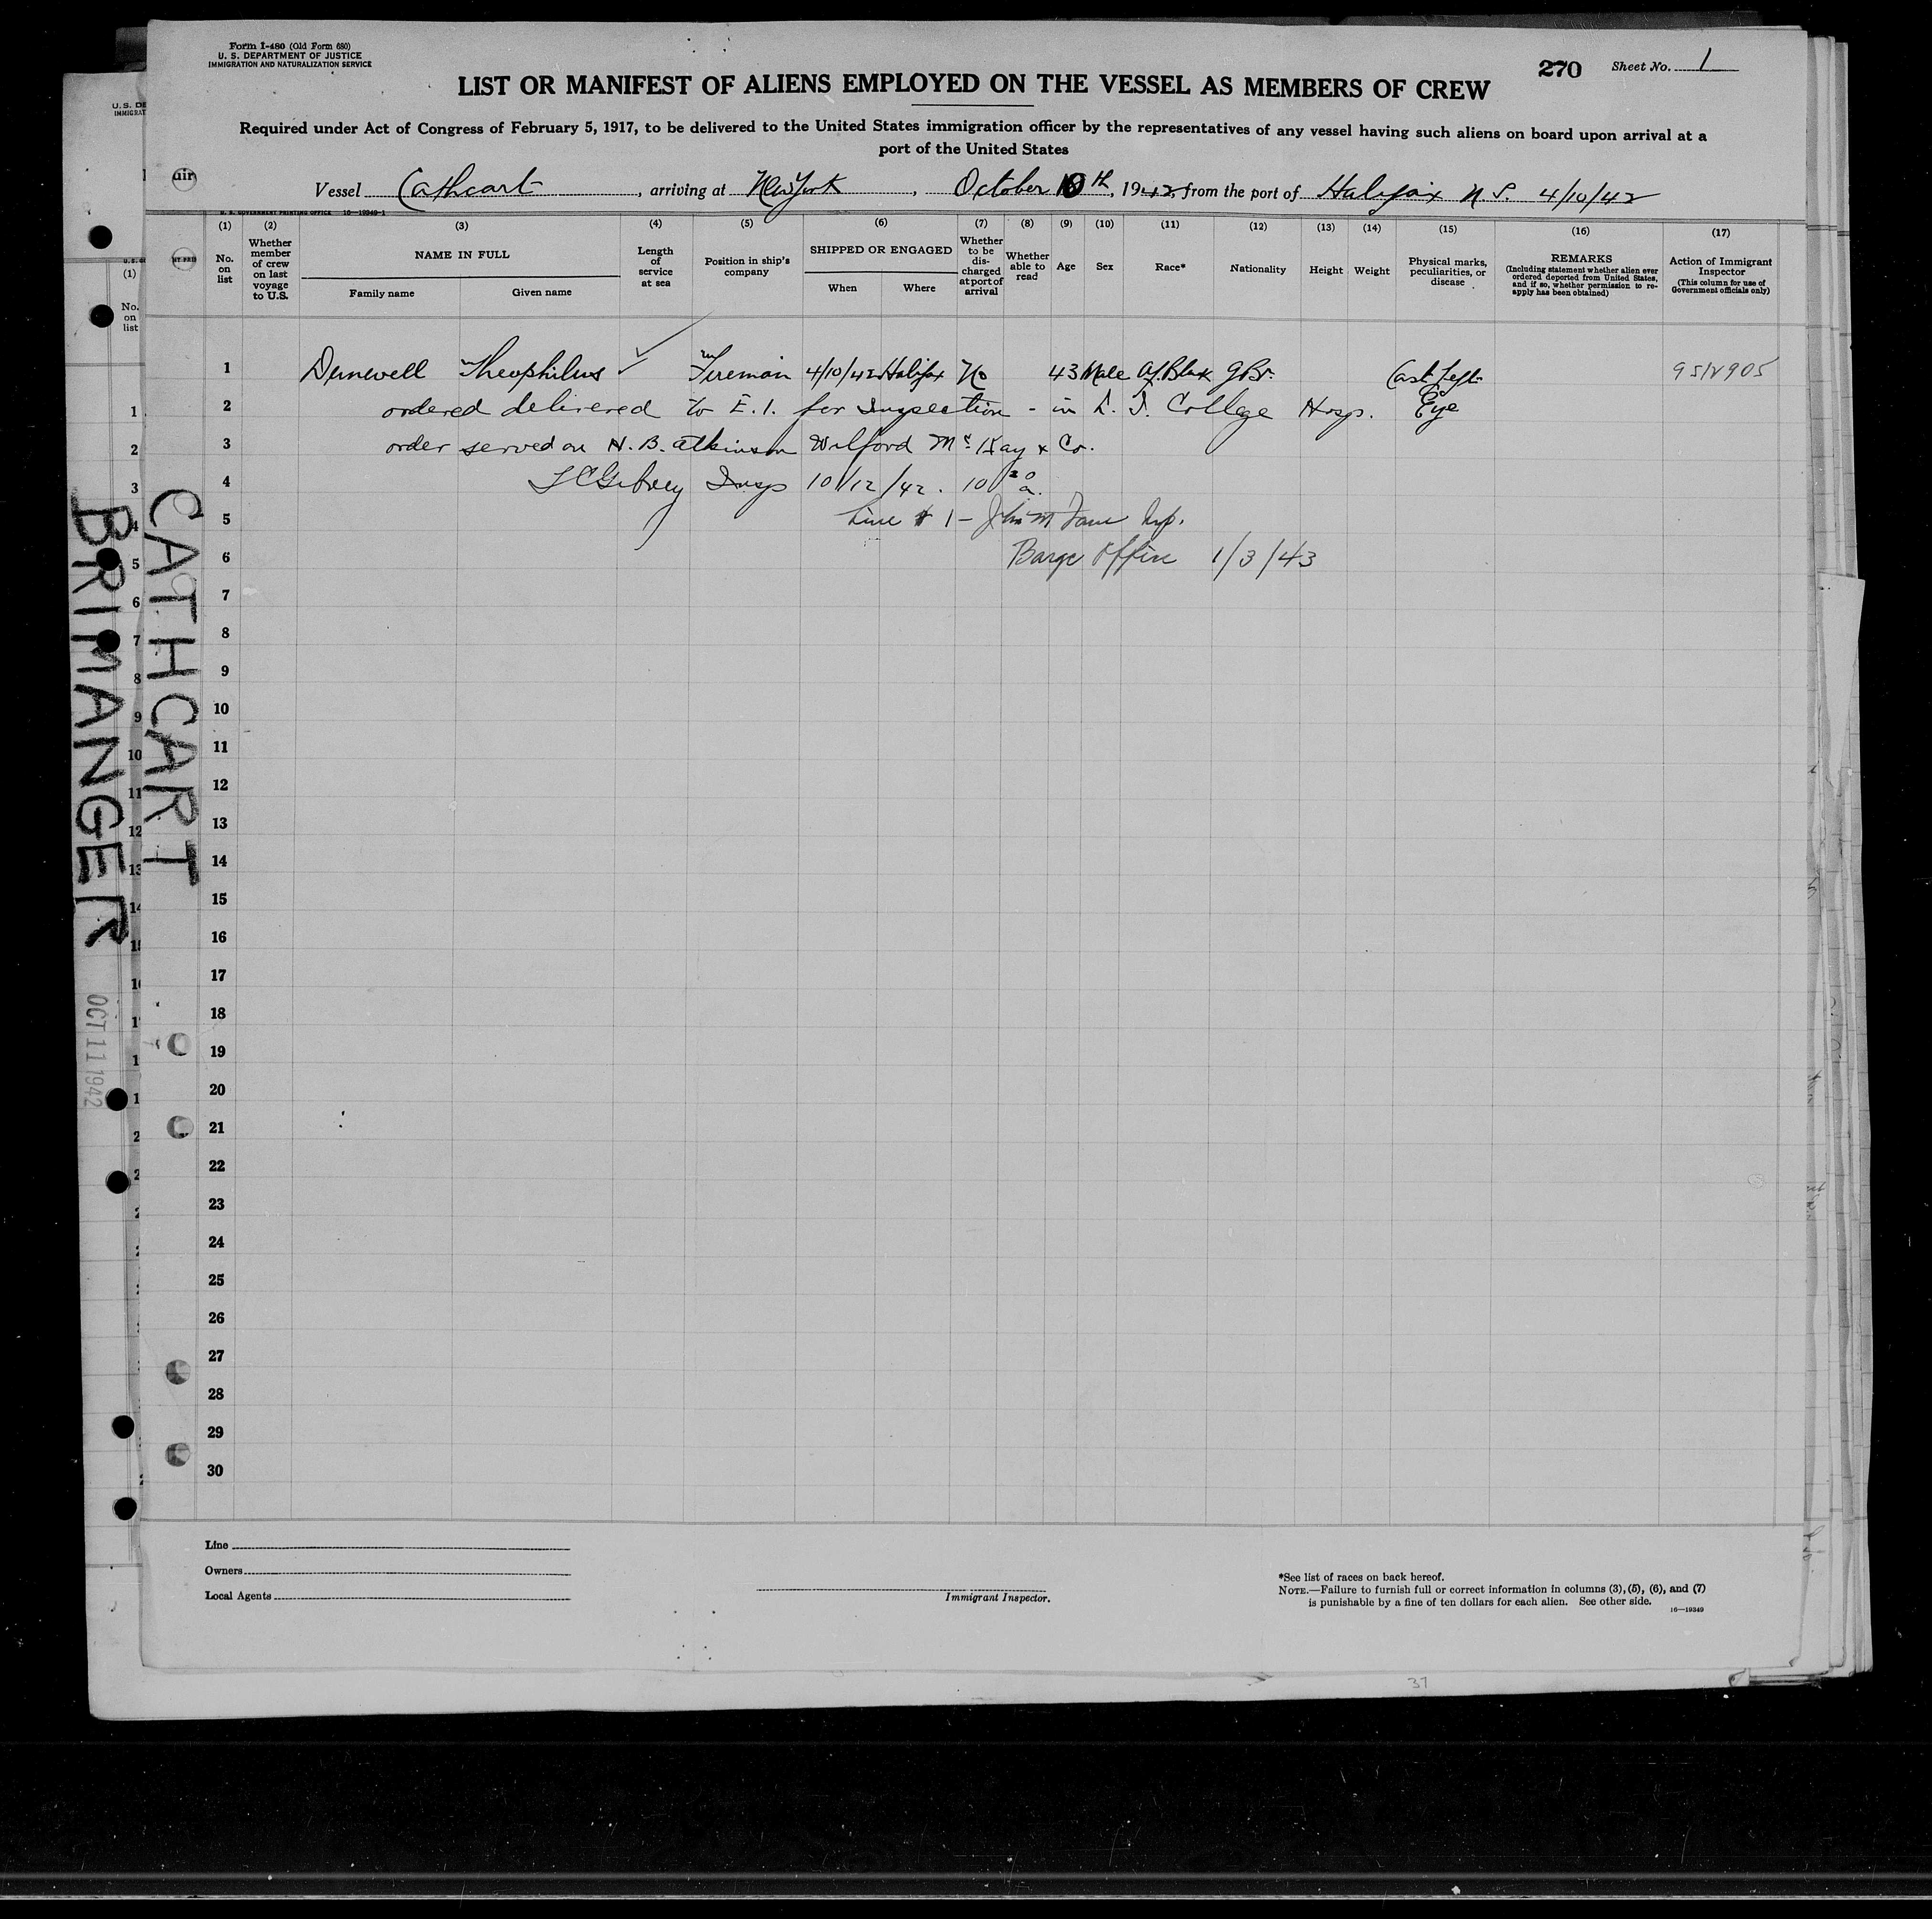 Form I-480 (Old Form 680)
U. S. DEPARTMENT OF JUSTICE
IMMIGRATION AND NATURALIZATION SERVICE
270 Sheet No. 1
LIST OR MANIFEST OF ALIENS EMPLOYED ON THE VESSEL AS MEMBERS OF CREW
Required under Act of Congress of February 5, 1917, to be delivered to the United States immigration officer by the representatives of any vessel having such aliens on board upon arrival at a
port of the United States
Vessel Cathcart, arriving at New York, October 10th, 1942, from the port of Halifax N.S. 4/10/42
U. S. GOVERNMENT PRINTING OFFICE 16—19349-1
(1) (2) (3) (4) (5) (6) (7) (8) (9) (10) (11) (12) (13) (14) (15) (16) (17)
No. on list
Whether member of crew on last voyage to U.S.
NAME IN FULL
Family name Given name
Length of service at sea
Position in ship's company
SHIPPED OR ENGAGED
When Where
Whether to be discharged at port of arrival
Whether able to read
Age
Sex
Race*
Nationality
Height
Weight
Physical marks, peculiarities, or disease
REMARKS
(Including statement whether alien ever ordered deported from United States, and if so, whether permission to re-apply has been obtained)
Action of Immigrant Inspector
(This column for use of Government officials only)
1 Dunewell Theophilus Fireman 4/10/42 Halifax No 43 Male Af.Black G.Br. Cast Left
2 ordered delivered to E.I. for Inspection - in L. I. College Hosp. Eye
3 order served on H. B. Atkinson Wilford McKay & Co.
4 Insp 10/12/42. 10 20 a.
5 Line # 1 -
6 Barge Office 1/3/43
7
8
9
10
11
12
13
14
15
16
17
18
19
20
21
22
23
24
25
26
27
28
29
30
CATHCART
BRIMANGER
OCT 11 1942
Line
Owners
Local Agents
Immigrant Inspector.
*See list of races on back hereof.
NOTE.—Failure to furnish full or correct information in columns (3), (5), (6), and (7)
is punishable by a fine of ten dollars for each alien. See other side.
16—19349
37